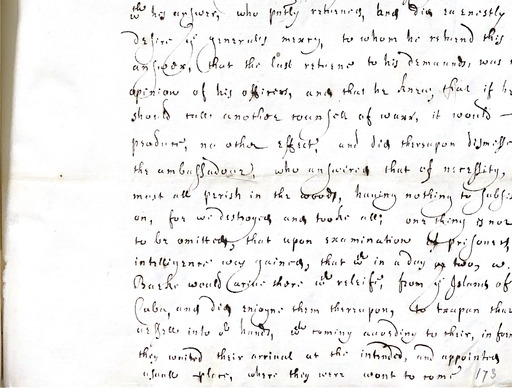 wth his answer, who pntly returned, and did earnestly
desire ye generalls mercy, to whom he returnd this
answer, that the last returne to his demaunds, was
opinion of his officers, and that he knew, that if he
should call another counsell of warr, it would
produce, no other effect, and did therupon dismisse
the ambassadour, who answered that of necessity,
must all perish in the woods, having nothing to subsi
on, for we destroyed and tooke all; one thing is not
to be omitted, that upon examination of prisoners
intelligence was gained, that wth in a day or two,
Barke would arive there wth releife, from ye Islands of
Cuba, and did enjoyne them therupon, to trapan that
vessell into our hands, wch coming according to their, inform
they waited their arrival at the intended, and appointed
usuall place, where they were wont to come 173